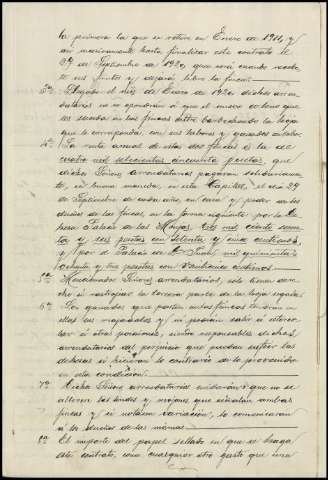 la primera la que se retire en Enero de 1911, y
así sucesivamente hasta finalizar este contrato el
29 de Septiembre de 1920, que será cuando recoba
se sus frutos y dejarán libre la finca.
3ª. Llegado el mes de Enero de 1920 dichos arren-
datarios no se opondrán á que el nuevo colono que
les suceda en las fincas entre barbechando la hoja
que le corresponda, con sus labores y ganados de labor.
4ª. La renta anual de estas dos fincas es la de
cuatro mil setecientas cincuenta pesetas, que
dichos Señores arrendatarios pagarán solidariamen-
te, en buena moneda, en esta Capital, el día 29
de Septiembre de cada año, en casa y poder de los
dueños de las fincas, en la forma siguiente: por la De-
hesa Palacio de las Monjas, tres mil ciento sesen-
ta y seis pesetas con setenta y cinco céntimos
y por el Palacio de mil quinientas
ochenta y tres pesetas con veinticinco céntimos.
5ª. Mencionados Señores arrendatarios, solo tienen dere-
cho á rastrojar la tercera parte de la hoja segada.
6ª. Los ganados que pasten en las fincas tendrán en
ellas sus majadales y ni podrán salir á estercо-
lar á otras posesiones, siendo responsables dichos
arrendatarios del perjuicio que puedan sufrir las
dehesas si hicieran lo contrario de lo prevenido
en esta condición.
7ª. Dichos Señores arrendatarios cuidarán que no se
alteren las lindes y mojones que señalan ambas
fincas y si notasen variación, lo comunicarán
á los dueños de las mismas.
8ª. El importe del papel sellado en que se haga
este contrato, como cualquier otro gasto que sea